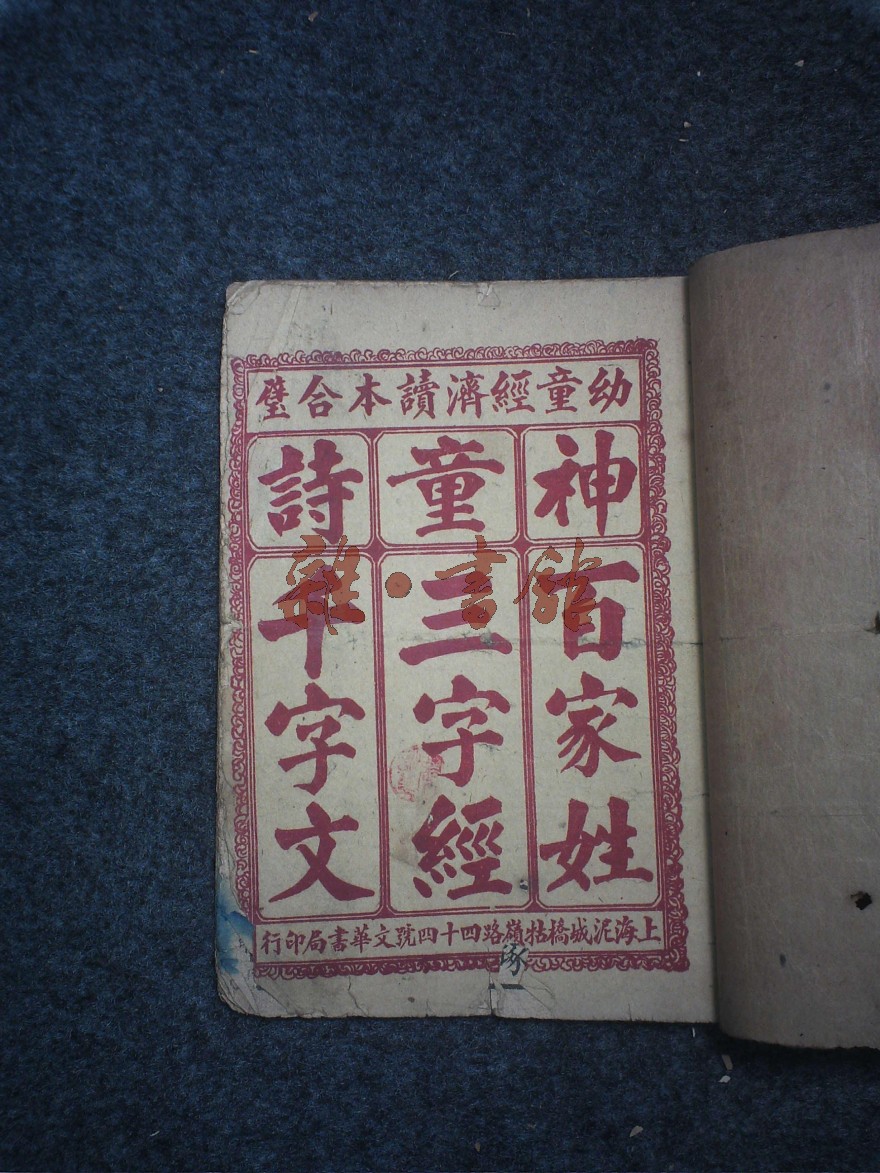 幼童經濟讀本合璧
神童詩
百家姓
三字經
千字文
上海泥城橋牯嶺路四十四號文華書局印行
雜·書館